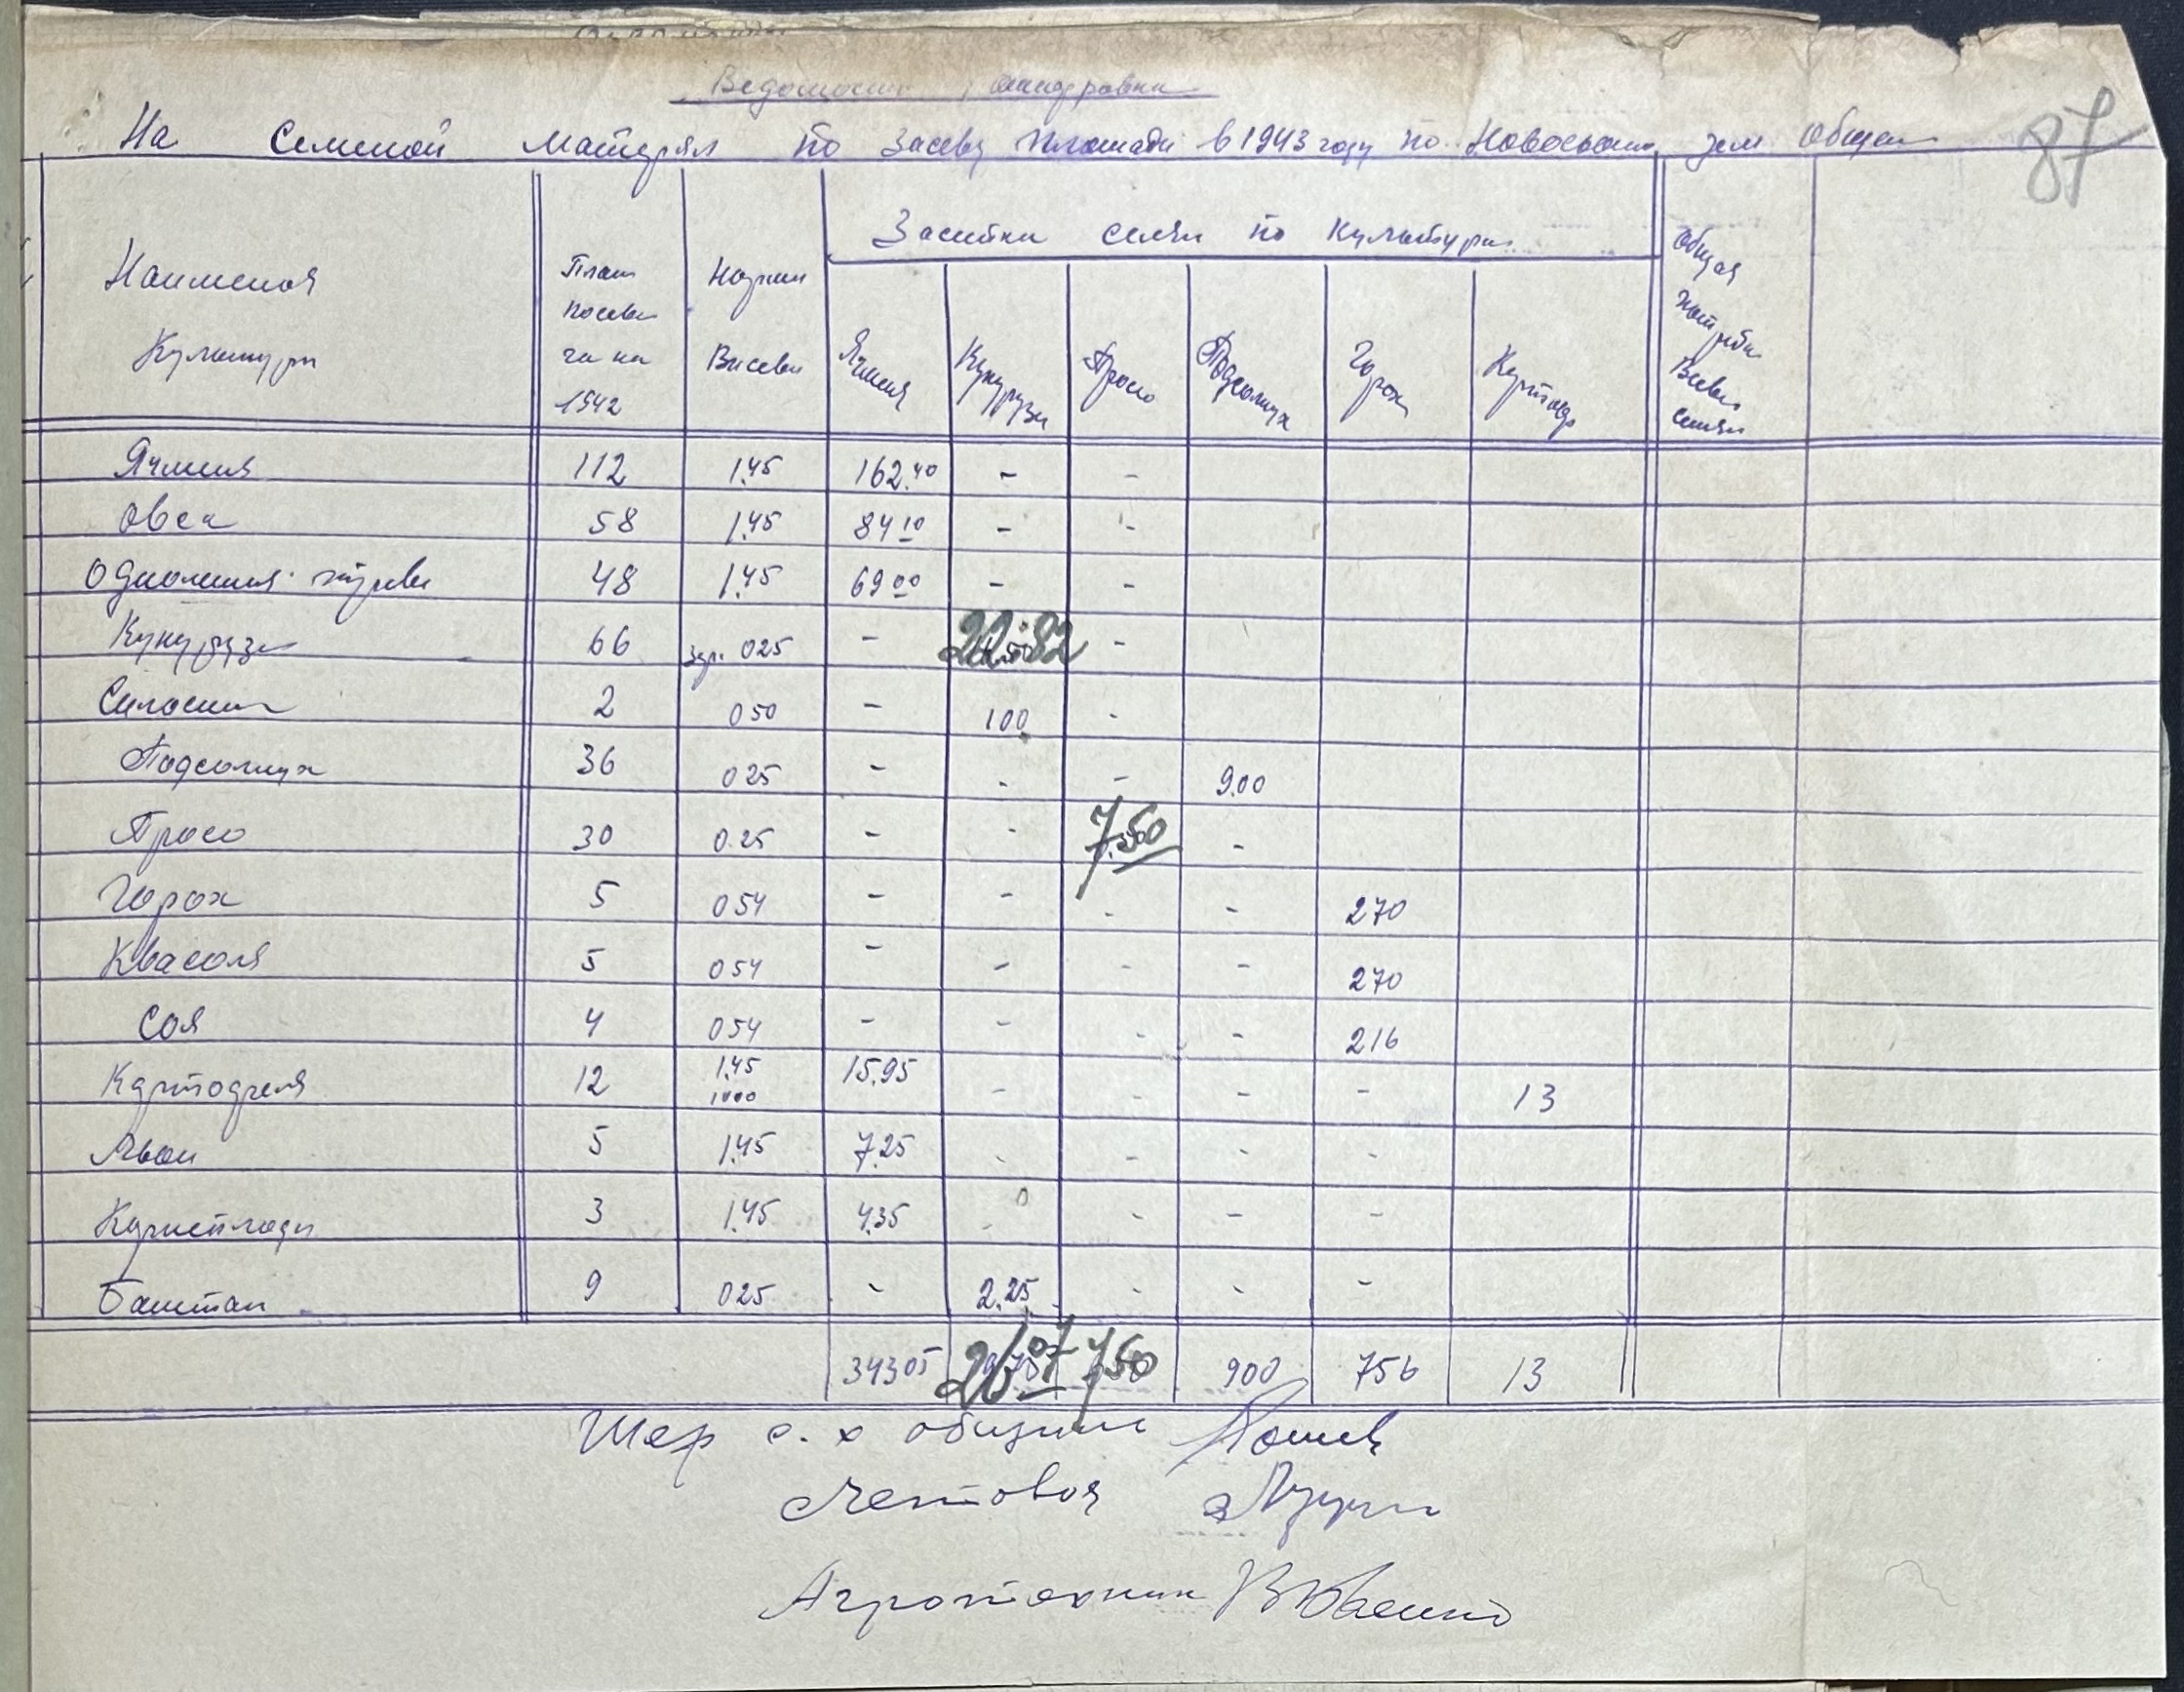 87
Ведомость
На Семеной матерял по Засеву площади в 1943 году по зем Общен
Наименов Культури
План посева га на 1942
Норми Висева
Засипки семян по Культури
Ячменя
Кукурузи
Просо
Подсолнух
Горох
Картофр
Общая потребн Всево семян
Ячменя 112 1.45 162.40 - -
Овса 58 1.45 84 10 - -
Однолетня трави 48 1.45 69 00 - -
Кукурузи 66 зер. 025 - 22.82 -
Силосник 2 050 - 100 -
Подсолнух 36 025 - - - 9.00
Просо 30 0.25 - - 7.50 -
Горох 5 054 - - - - 270
Квасоля 5 054 - - - - 270
Соя 4 054 - - - - 216
Картофеля 12 1.45 1000 15.95 - - - - 13
Явои 5 1.45 7.25 - - - -
3 1.45 4.35 - - - -
Баштан 9 025 - 2.25 - - -
343 05 26 07 7 50 900 756 13
с. х общини
Агротехник